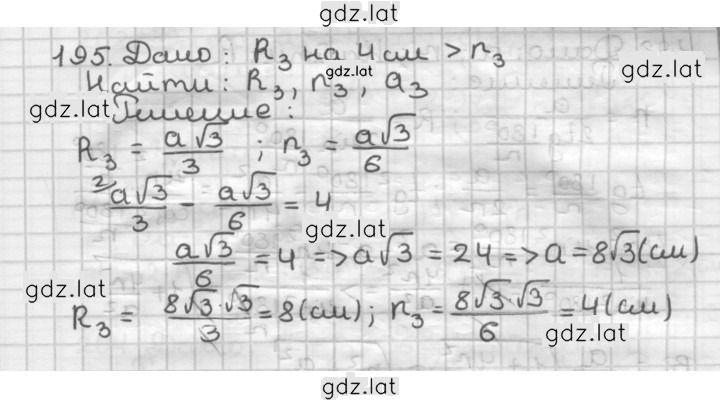 gdz.lat
195. Дано: R₃ на 4 см > r₃
gdz.lat
gdz.lat
Найти: R₃, r₃, a₃
gdz.lat
Решение:
R₃ = a√3/3 ; r₃ = a√3/6
²a√3/3 - a√3/6 = 4
gdz.lat
a√3/6 = 4 => a√3 = 24 => a = 8√3 (см)
gdz.lat
R₃ = 8√3·√3/3 = 8 (см); r₃ = 8√3·√3/6 = 4 (см)
gdz.lat
gdz.lat